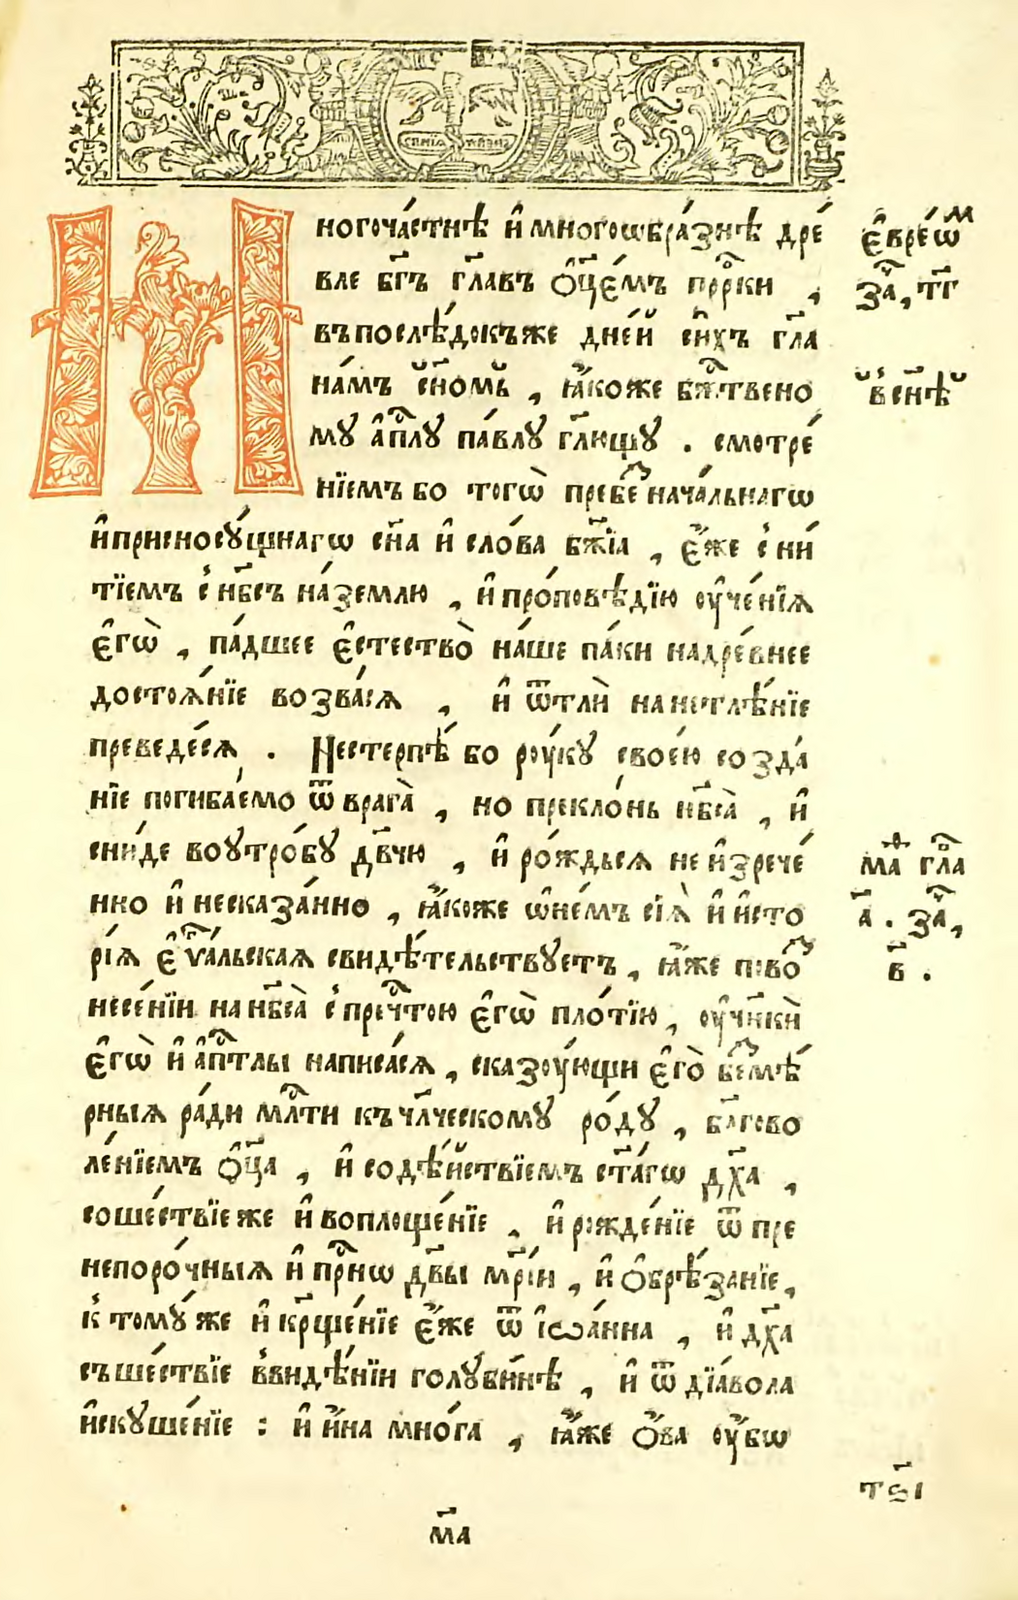 Многоча́стнѣ и҆ многоѡбра́знѣ дре́
вле бг҃ъ гл҃авъ ѻ҆ц҃е́мъ прⷪ҇рки ,
въ послѣ́докъже дне́й си́хъ гл҃а
на́мъ ѡ҆ сн҃ѣ
на́мъ сн҃омъ , ꙗ҆́коже бжⷭ҇твено
мꙋ а҆пⷭ҇лꙋ па́влꙋ гл҃ющꙋ . смотре́
нїемъ бо тогѡ̀ пребез̾нача́льнагѡ
и҆присносꙋ́щнагѡ сн҃а и҆ сло́ва бж҃їа , є҆́же сни
тїемъ с нб҃съ на́землю , и҆ про́повѣдїю ᲂу҆че́нїѧ
є҆гѡ̀ , па́дшее є҆стество̀ на́ше па́ки надре́внее
достоѧ́нїе возва́сѧ , и҆ ѿтлѝ нанетлѣ́нїе
преведе́сѧ . Нестерпѣ́ бо рᲂу́кꙋ свое́ю созда́
нїе погиба́емо ѿ врага̀ , но прекло́нь нб҃са̀ , и҆
сни́де воᲂутро́бꙋ дв҃чю , и҆ ро́ждьсѧ неи҆зрече́
нно и҆ несказа́нно , ꙗ҆́коже ѡ҆не́мъ сїѧ̀ и҆ и҆сто
рі́ѧ є҆ѵⷢ҇альскаѧ свидѣ́тельствꙋетъ , ꙗ҆́же повоз̾
несе́нїи на нб҃са̀ с пречⷭ҇тою є҆гѡ̀ пло́тїю , ᲂу҆чн҃кѝ
є҆гѡ̀ и҆ а҆пⷭ҇тлы написа́сѧ , сказᲂу́ющи є҆го̀ без̾мѣ́
рныѧ ра́ди млⷭ҇ти къ чл҃ческомꙋ ро́дꙋ , бл҃гово
ле́нїемъ ѻ҆ц҃а , и҆ содѣ́йствїемъ ст҃а́гѡ дх҃а ,
соше́ствїе же и҆ воплоще́нїе , и҆ рожде́нїе ѿ пре
непоро́чныѧ и҆ прⷭ҇нѡ дв҃ы мр҃і́и , и҆ ѻ҆брѣ́занїе ,
к томꙋ́ же и҆ крⷳ҇ще́нїе є҆́же ѿ і҆ѡа́нна , и҆ дх҃а
съше́ствїе ввидѣ́нїи голꙋби́нѣ , и҆ ѿ дїа́вола
и҆скꙋше́нїе : и҆ и҆́на мно́га , ꙗ҆́же ѻ҆́ва ᲂу҆́бѡ
є҆вре́ѡⷨ
заⷱ҇ , тг҃
в сн҃ѣ
маⷴ҇ глⷡ҇а
а҃ . заⷱ҇ ,
в҃ .
тѕ҃і
ма҃